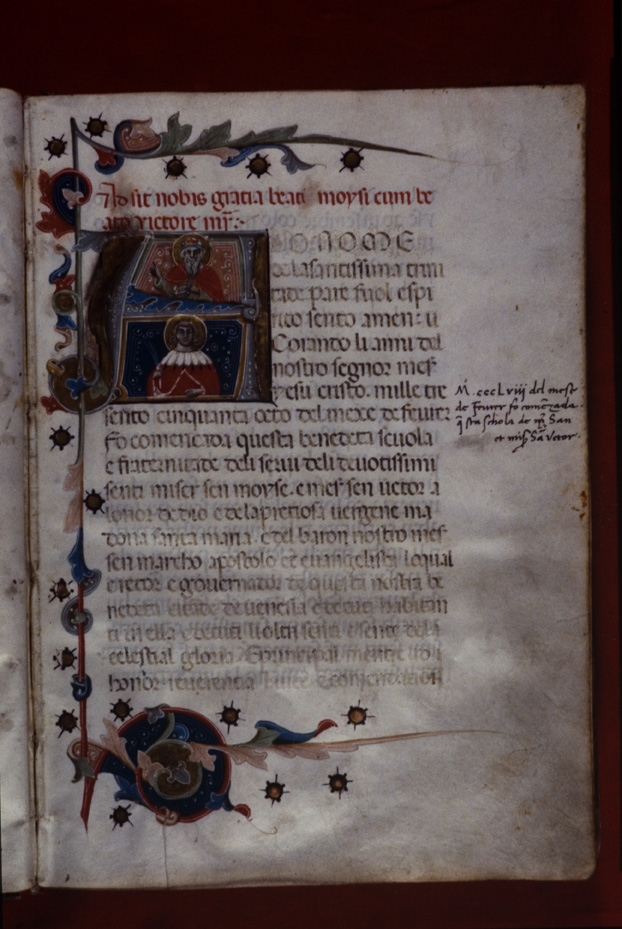 Ad sit nobis gratia beati moysi cum be
ato victore mr̄:
NOME
dela santissima trini
tade pare fiiol e spi
rito sento amen: u
Corando li anni del
nostro segnor mes
yesu cristo. mille tre
sento cinquanta octo del mexe de feurer
fo comenzada questa benedeta scuola
e fraternitade deli serui deli deuotissimi
senti miser sen moyse. e mes sen uetor a
honor de dio e dela preciosa uergene ma
dona santa maria. e del baron nostro mes
sen marcho apostolo et euangelista loqual
e retor e gouernator de questa nostra be
neta citade de uenesia e de tuti habitan
ti in ella e de tuti li oltri senti e sente dela
celestial gloria. E principal mentre
honor reuerencia
M.cccLviii del mese
de feurer fo comēzada
sta schola de San
et San Vetor.